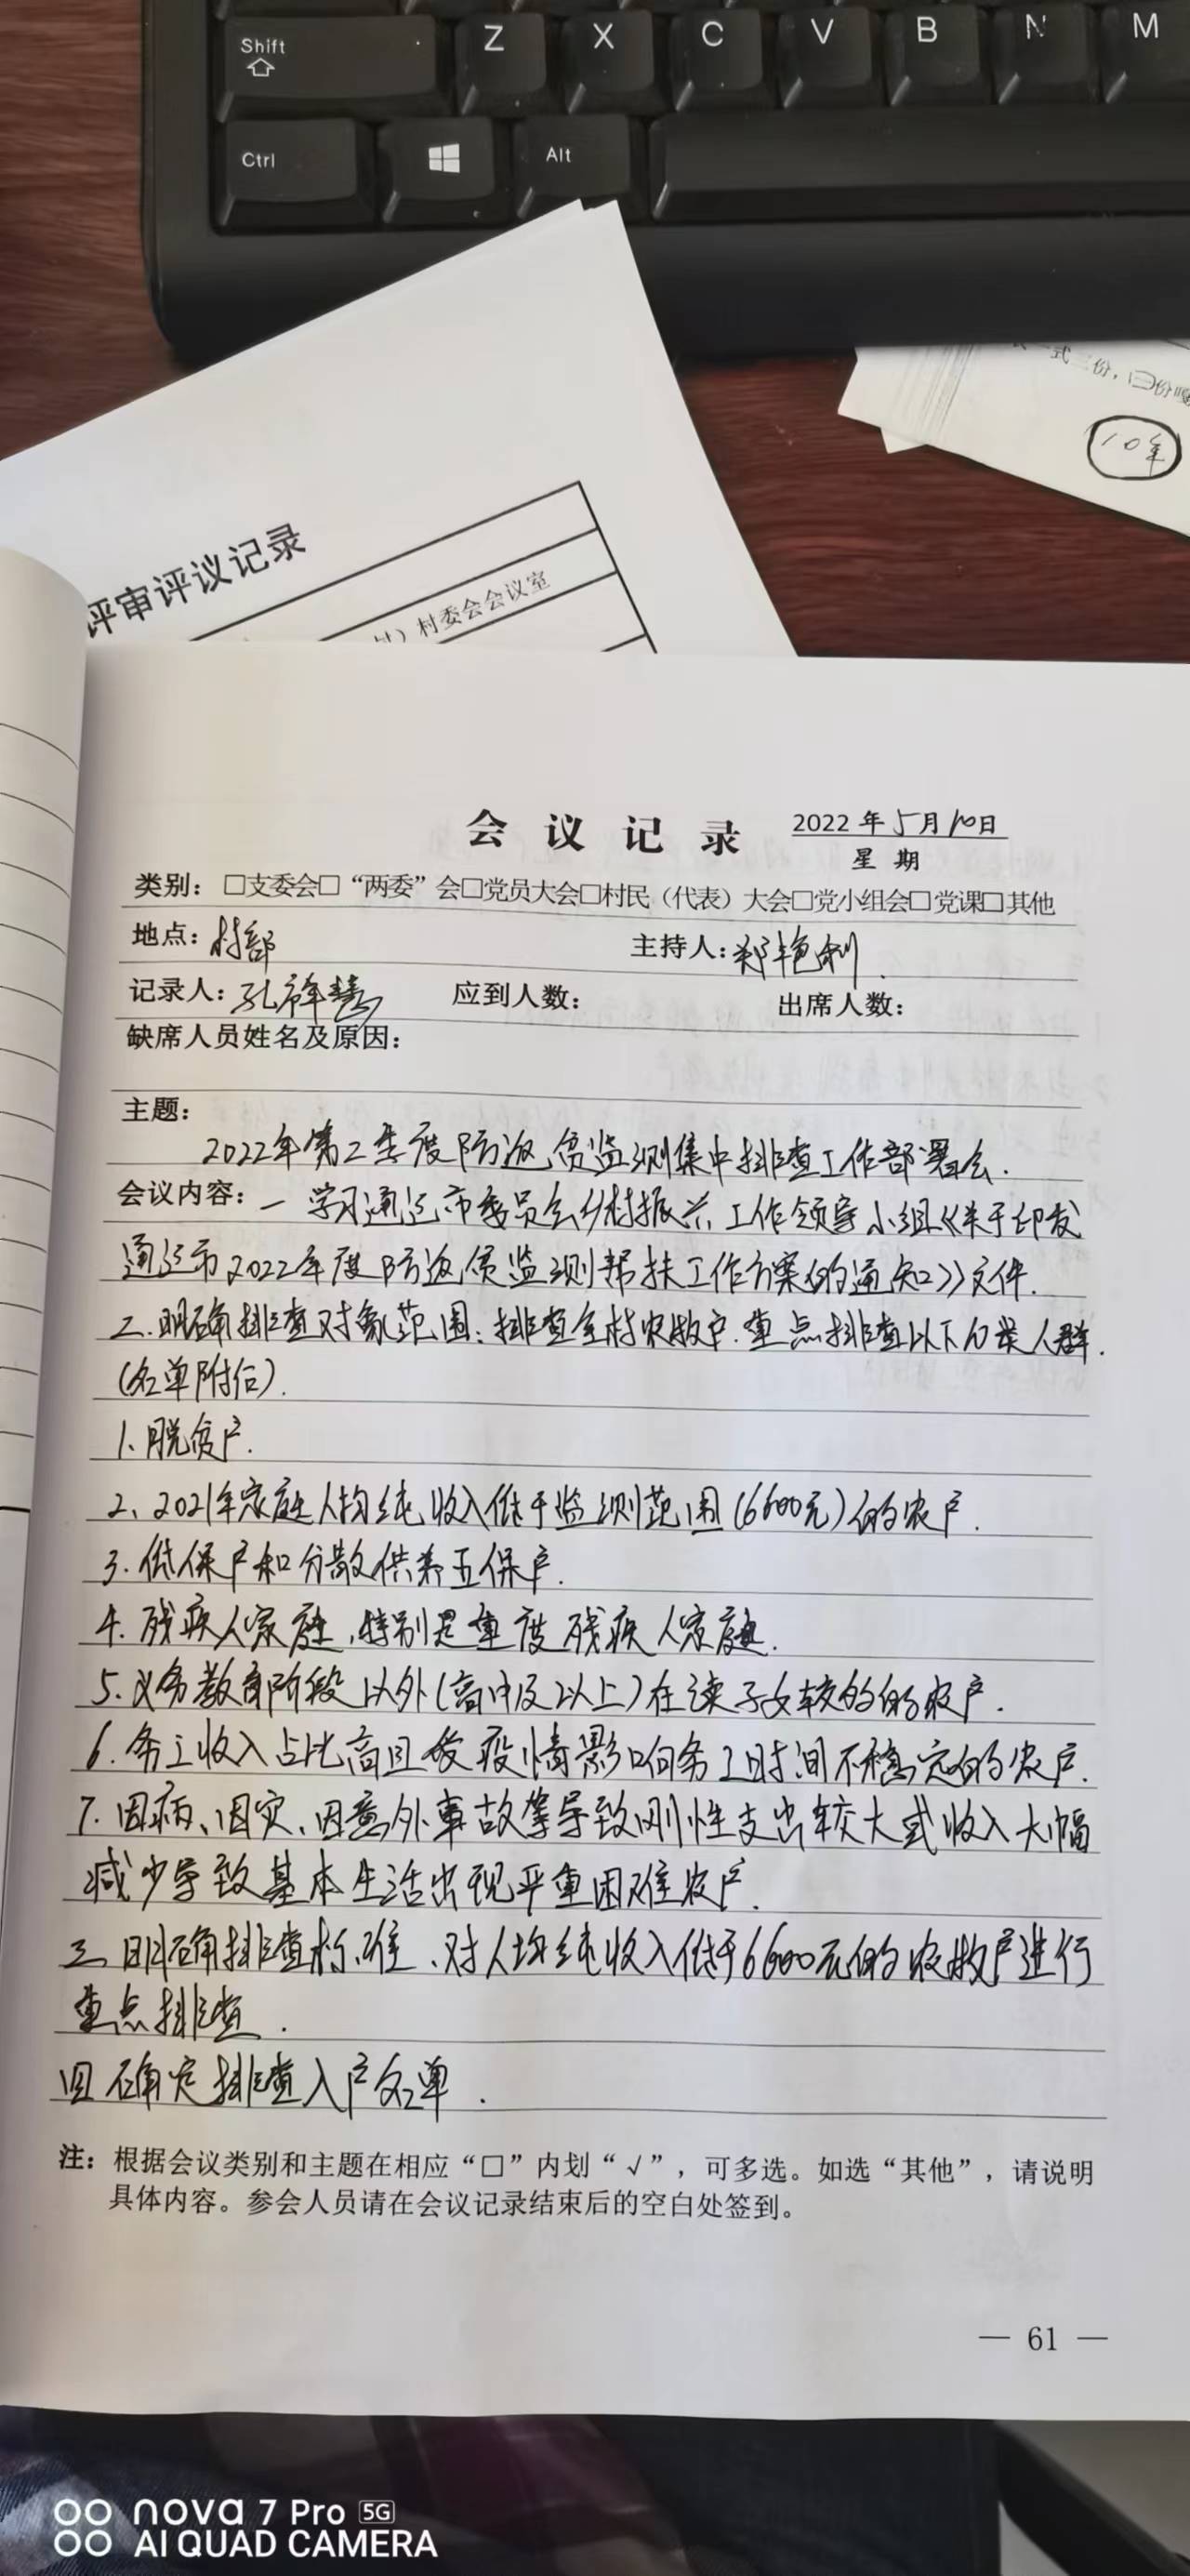 Shift
Z X C V B N M
Ctrl
Alt
一式三份,
10年
评审评议记录
村委会会议室
会议记录
2022年5月10日
星期
类别：□支委会□“两委”会□党员大会□村民（代表）大会□党小组会□党课□其他
地点：村部 主持人：郑艳利
记录人：孔祥慧 应到人数： 出席人数：
缺席人员姓名及原因：
主题：
2022年第2季度防返贫监测集中排查工作部署会.
会议内容：一 学习通辽市委员会乡村振兴工作领导小组《关于印发
通辽市2022年度防返贫监测帮扶工作方案的通知》文件.
二.明确排查对象范围：排查全村农牧户.重点排查以下几类人群.
(名单附后).
1、脱贫户.
2、2021年家庭人均纯收入低于监测范围(6600元)的农户.
3.低保户和分散供养五保户.
4.残疾人家庭,特别是重度残疾人家庭.
5.义务教育阶段以外(高中及以上)在读子女较多的农户.
6.务工收入占比高且受疫情影响务工时间不稳定的农户.
7.因病、因灾、因意外事故等导致刚性支出较大或收入大幅
减少导致基本生活出现严重困难农户.
三.明确排查标准、对人均纯收入低于6600元的农牧户进行
重点排查.
四 确定排查入户名单.
注：根据会议类别和主题在相应“□”内划“√”，可多选。如选“其他”，请说明
具体内容。参会人员请在会议记录结束后的空白处签到。
— 61 —
nova 7 Pro 5G
AI QUAD CAMERA